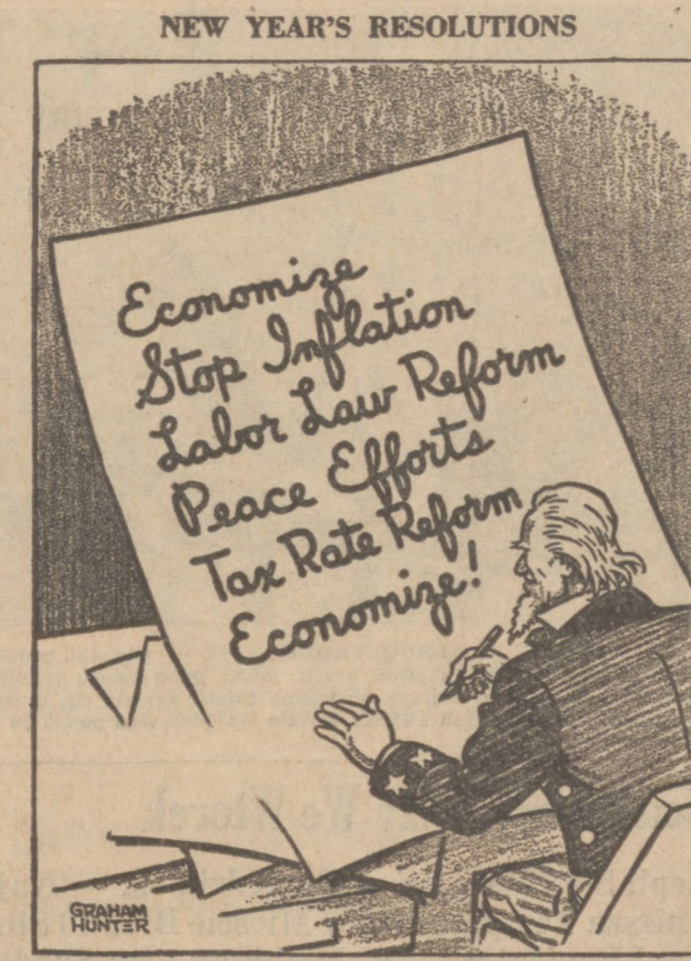 NEW YEAR'S RESOLUTIONS
Economize
Stop Inflation
Labor Law Reform
Peace Efforts
Tax Rate Reform
Economize!
GRAHAM
HUNTER